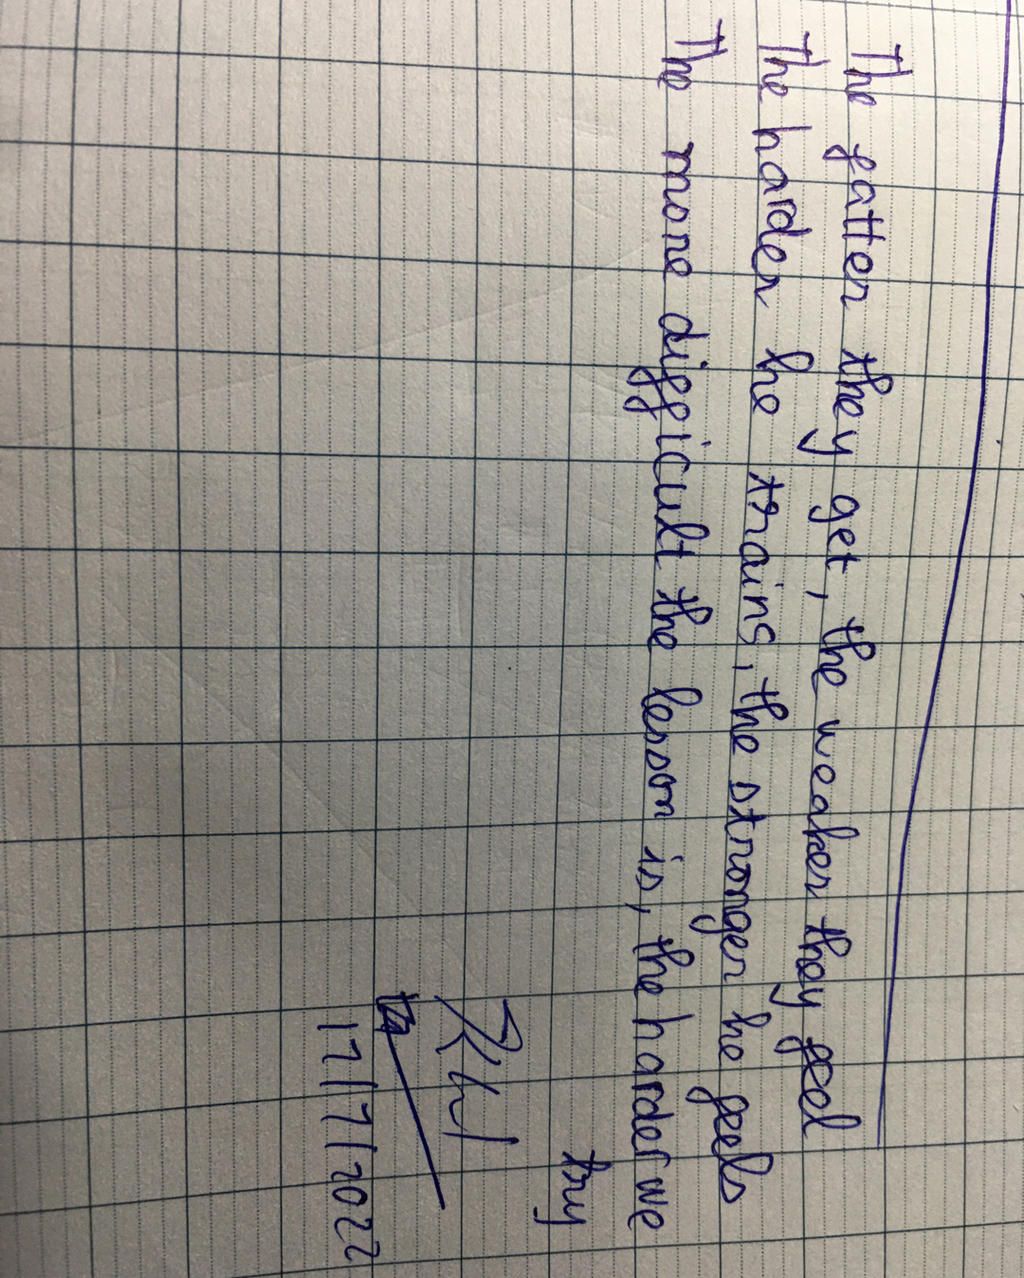 The fatter they get, the weaker they feel
The harder he trains, the stronger he feels
The more difficult the lesson is, the harder we
try
17/7/2022